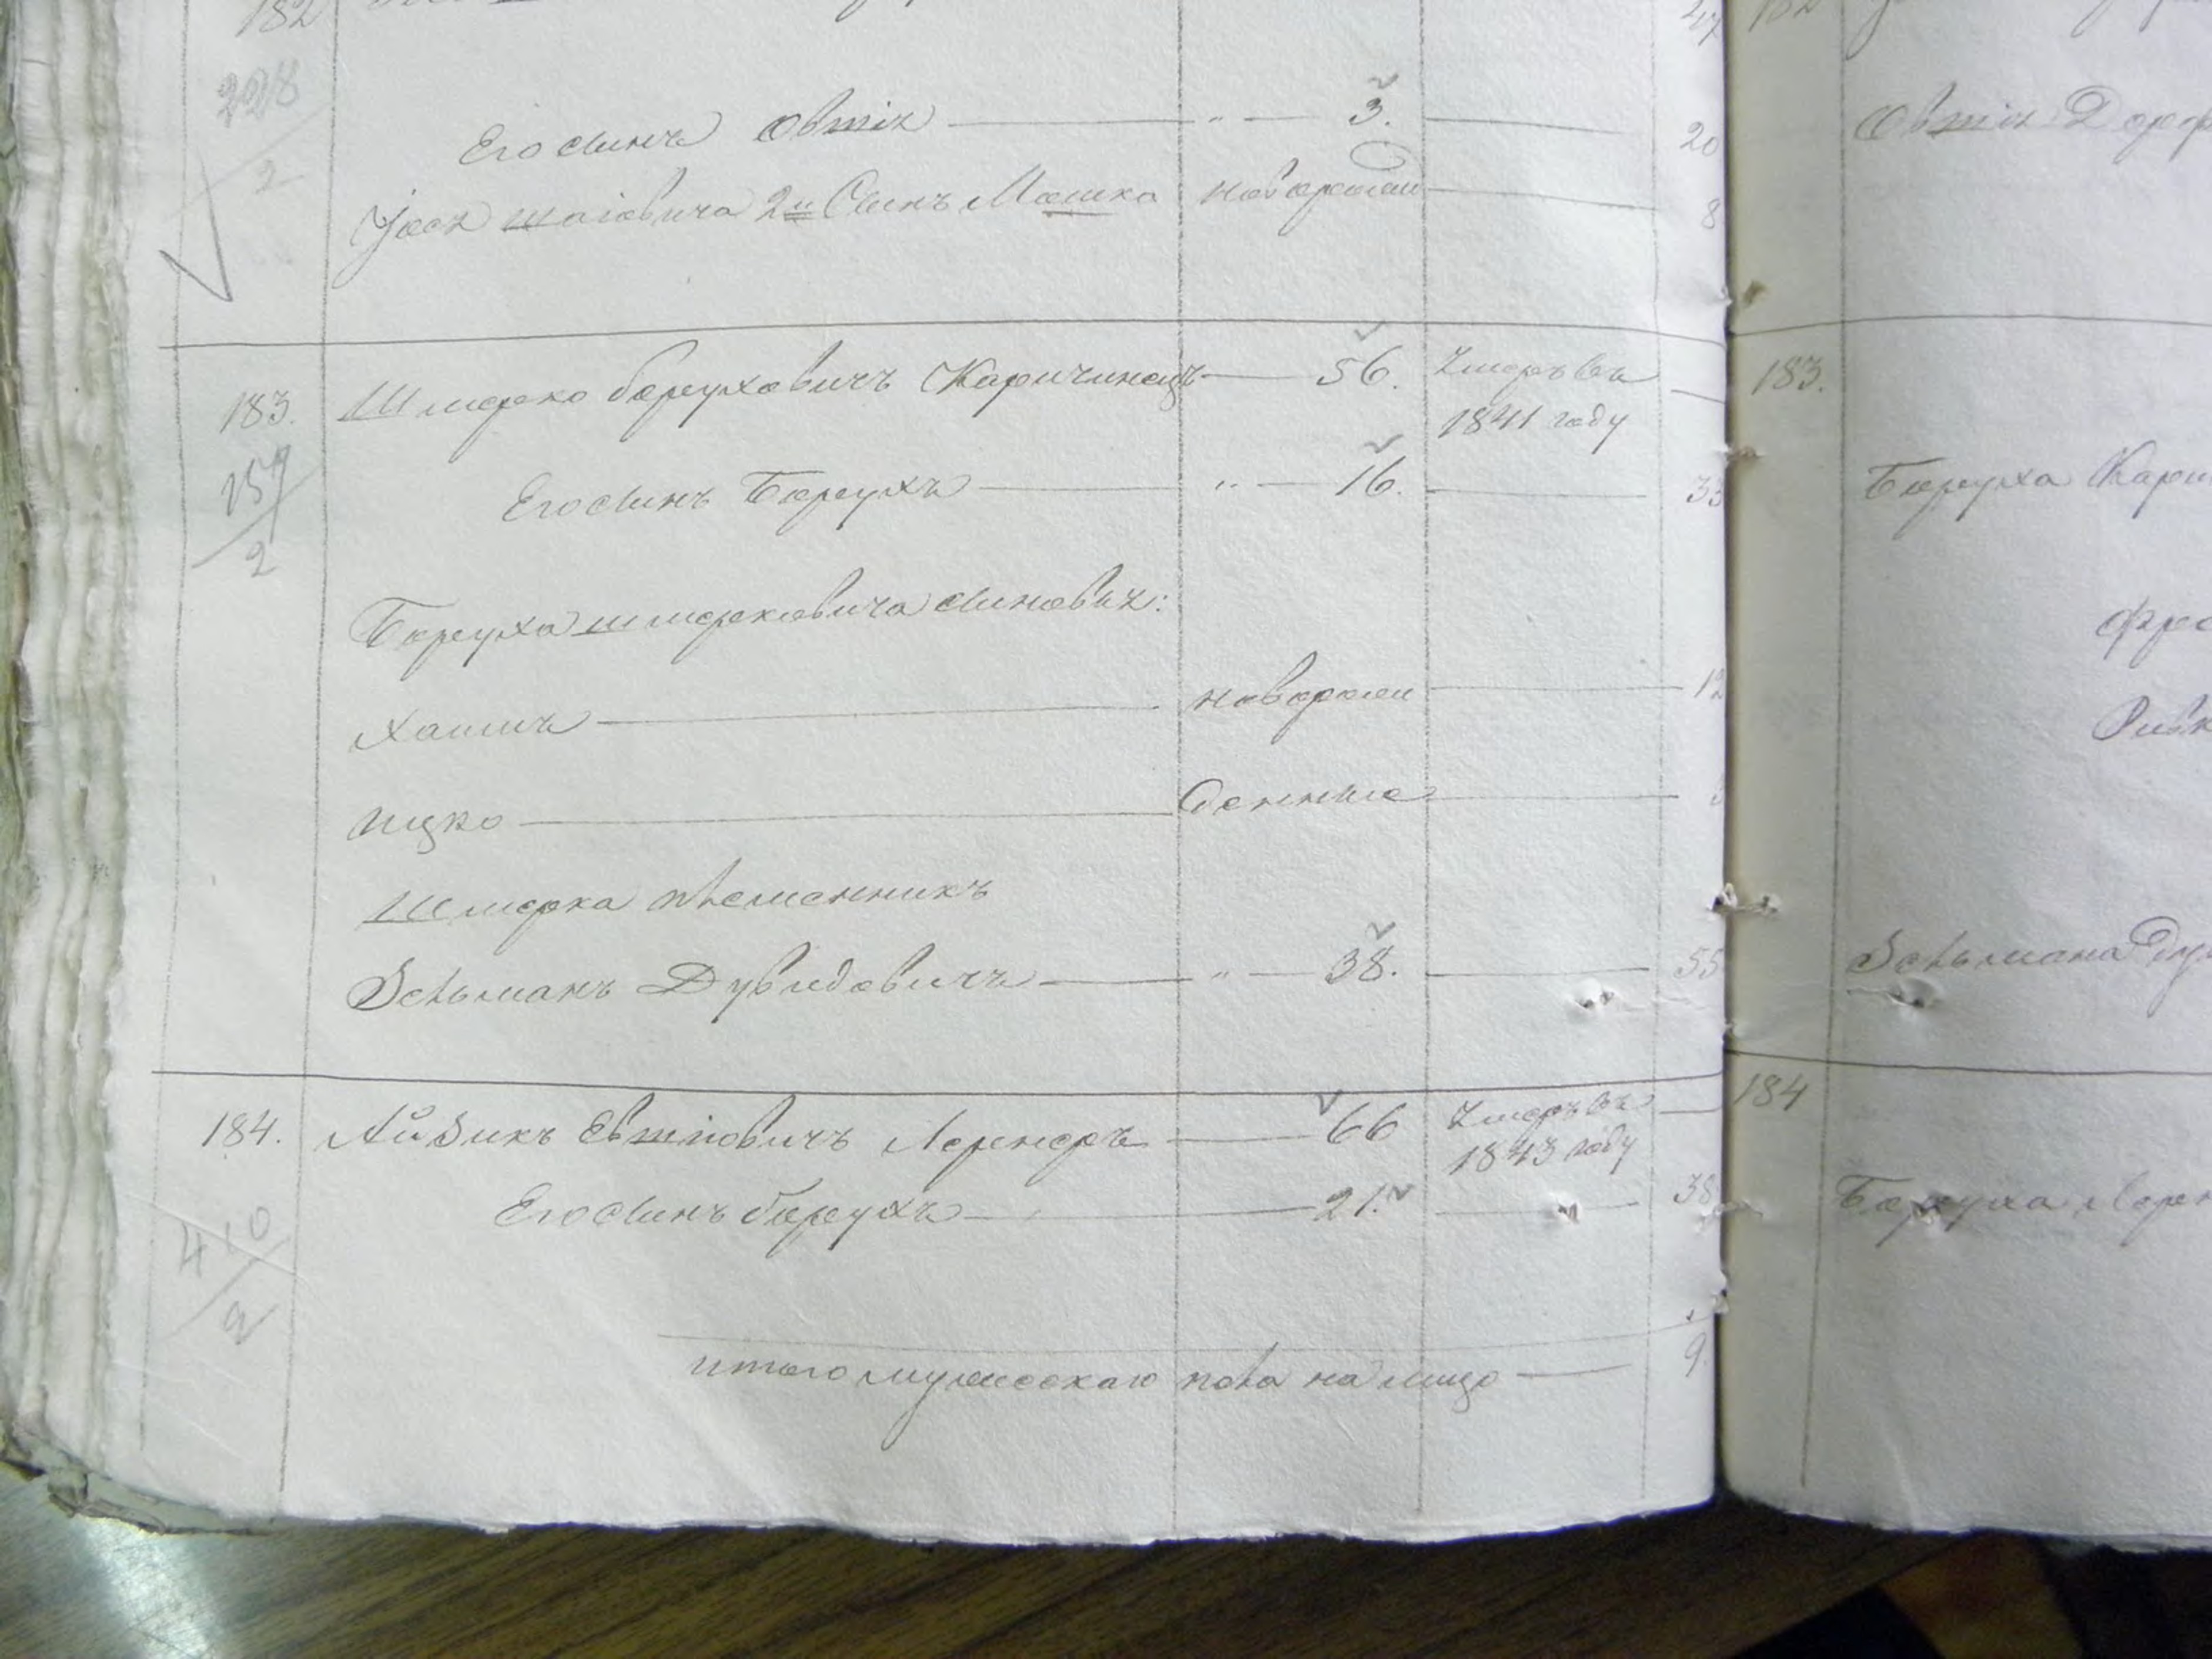 182 47 182
228
2
Его сынъ Овшія " — 3. 20
Іося шаіовича 2й Сынъ Мошка новорожден 8
183. Шмерко борухович Каричинецъ — 56. Умеръ въ
1841 году
157
2
Его сынъ Борухъ " — 16. 33
Боруха шмерковича сыновья:
Хаимъ новорож 12
Ицко денные
Шмерка племянникъ
Зельманъ Дувидовичъ " — 38. 55
184. Айзикъ Евшіовичъ Лернеръ — 66 Умеръ въ
1843 году
Его сынъ борухъ — 21. 38
410
2
итого мужескаго пола на лицо — 9.
Овшія Дор
183.
Боруха Кари
Фре
Ривк
Зельмана Ду
184
Боруха Лерн